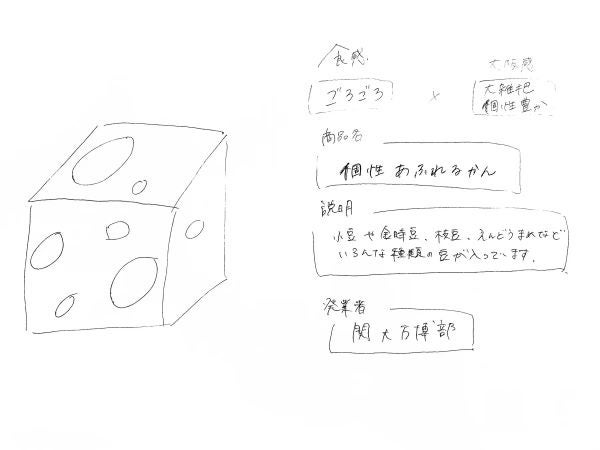 食感
大阪感
ごろごろ
×
大雑把
個性豊か
商品名
個性あふれるかん
説明
小豆や金時豆、枝豆、えんどうまめなど
いろんな種類の豆が入っています。
発業者
関大万博部